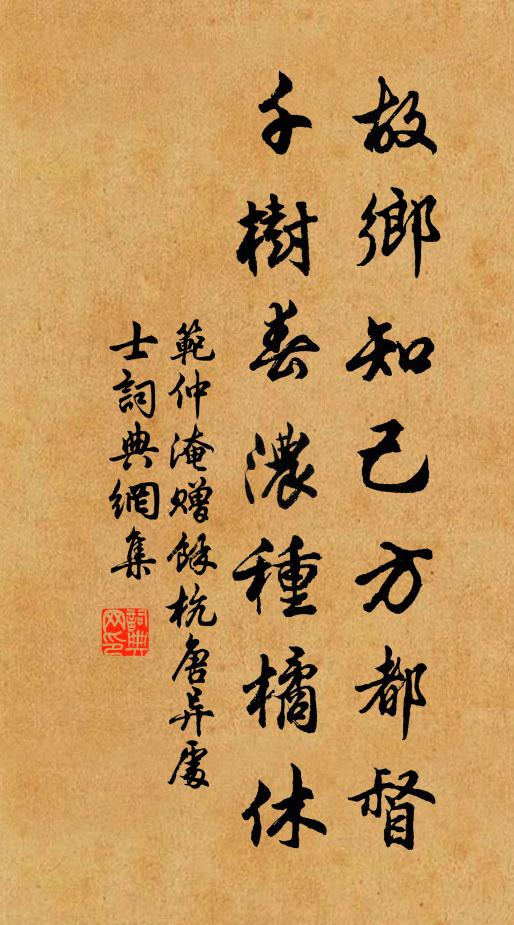 故鄉知己方都督
千樹春濃種橘休
範仲淹贈餘杭唐异處
士詞典網集
詞典
网印